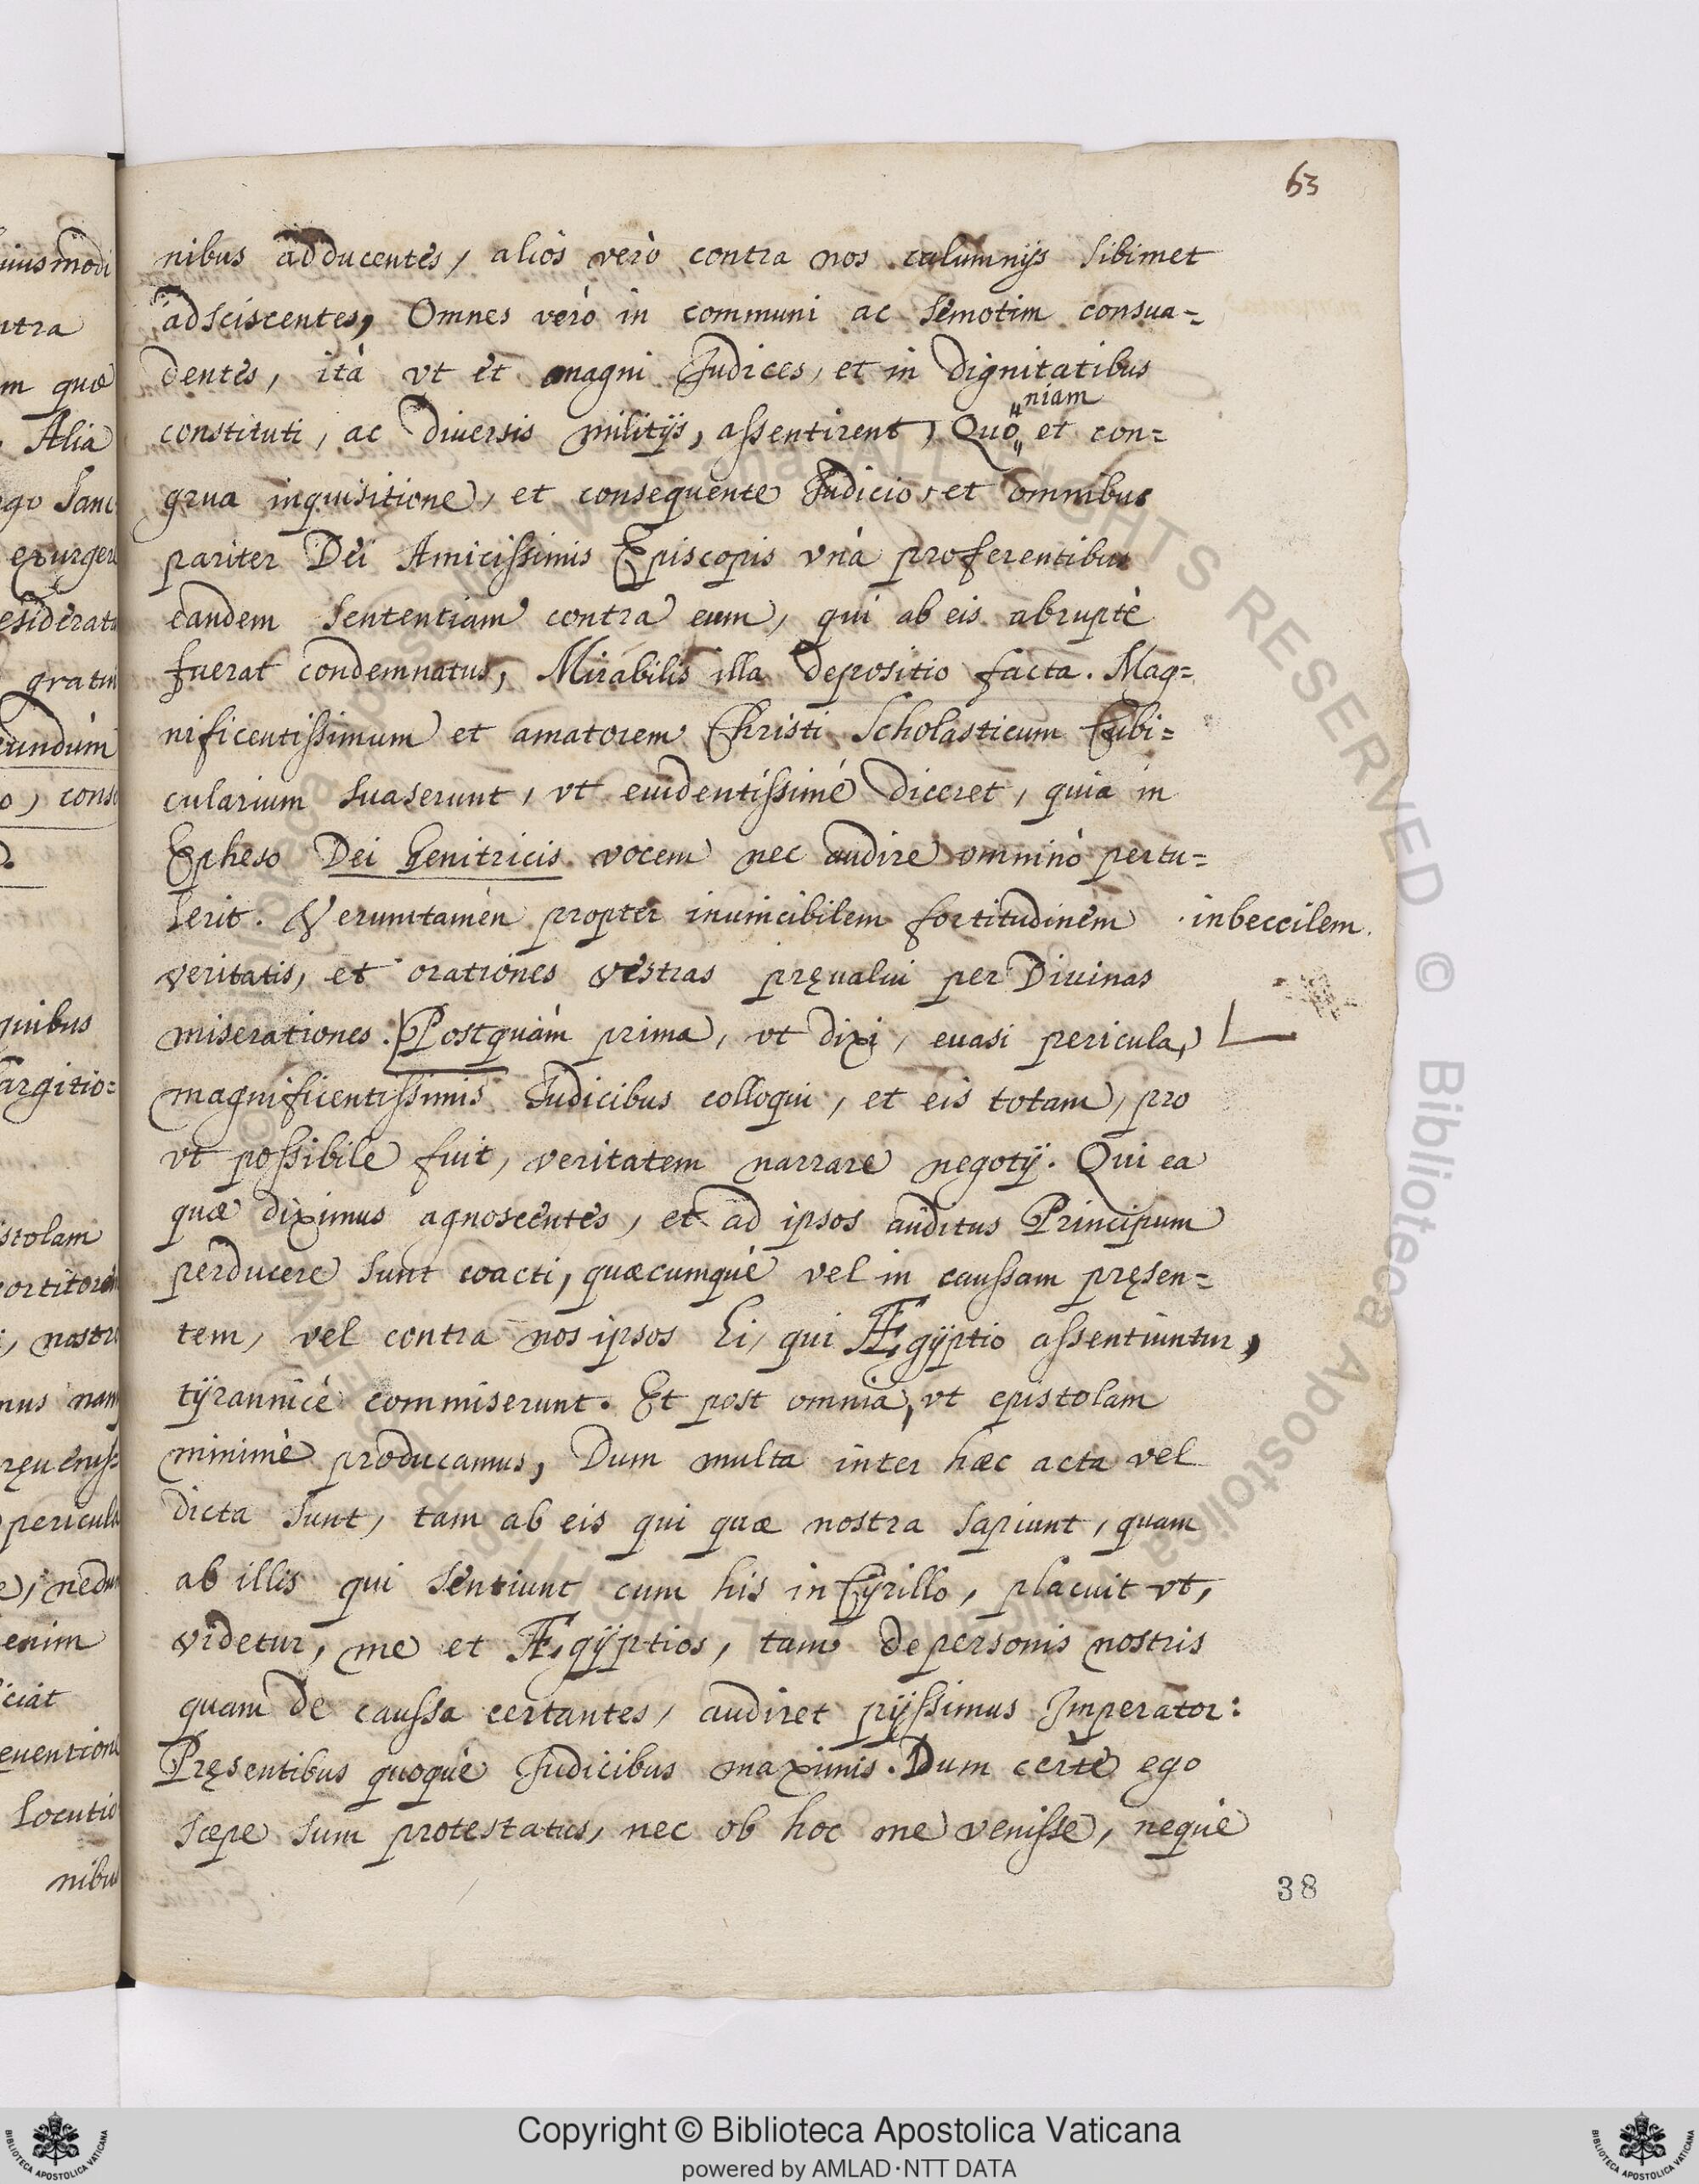 63
nibus adducentes, aliòs verò contra nos calumnijs sibimet
adsciscentes, Omnes verò in communi ac semotim consua=
dentes, ità vt et magni Judices, et in dignitatibus
niam
constituti, ac diuersis militijs, assentirent, Quo et con=
grua inquisitione, et consequente Judicio, et omnibus
pariter Dei Amicissimis Episcopis vnà proferentibus
eandem sententiam contra eum, qui ab eis abruptè
fuerat condemnatus, Mirabilis illa depositio facta. Mag=
nificentissimum et amatorem Christi Scholasticum Cubi=
cularium suaserunt, vt euidentissimè diceret, quia in
Epheso Dei Genitricis vocem nec audire omninò pertu=
lerit. Verumtamèn propter inuincibilem fortitudinem · inbeccilem.
veritatis, et orationes vestras pręualui per Diuinas
miserationes. Postquàm prima, vt dixi, euasi pericula,
magnificentissimis Judicibus colloqui, et eis totam, pro
vt possibile fuit, veritatem narrare negotÿ. Qui ea
quæ diximus agnoscentes, et ad ipsos auditus Principum
perducere sunt coacti, quæcumquè vel in caussam pręsen=
tem, vel contra nos ipsos Ei, qui Ægÿptio assentiuntur,
tÿrannicè commiserunt. Et post omnia, vt epistolam
minimè producamus, Dum multa inter hæc acta vel
dicta sunt, tam ab eis qui quæ nostra sapiunt, quam
ab illis qui sentiunt cum his in Cÿrillo, placuit vt,
videtur, me et Ægÿptios, tam de personis nostris
quam de caussa certantes, audiret pijssimus Imperator:
Pręsentibus quoquè Judicibus maximis. Dum certè ego
sæpe sum protestatus, nec ob hoc me venisse, nequè
38
uiusmodi
ntra
m quæ
Alia
ego sanc
expurgere
esiderata
gratiu
cundùm
o, conso
quibus
largitio=
stolam
portitorem
nostro
pericula
enim
iciat
euentione
locutio
nibus
Copyright © Biblioteca Apostolica Vaticana
powered by AMLAD·NTT DATA